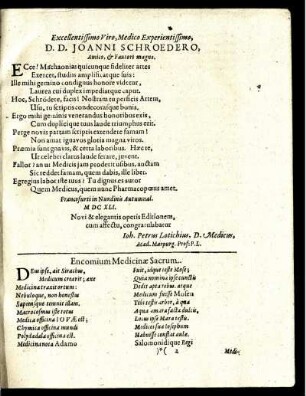 Excellentissimo Viro, Medico Experientissimo,
D. D. JOANNI SCHROEDERO,
Amico, & Fautori magno.
ECce! Machaonias quicunque fideliter artes
Exercet, studiis amplificatque suis:
Ille mihi gemino condignus honore videtur,
Laurea cui duplex impediatque caput.
Hoc, Schrödere, facis! Nostram tu perficis Artem,
Usu, tu scriptis condecorasque bonis.
Ergo mihi geminis venerandus honoribus exis,
Cum duplicique tuus laude triumphus erit.
Perge novis partam scriptis extendere famam!
Non amat ignavos gloria magna viros.
Præmia sunt gnavis, & certa laboribus. Hæc est,
Ur celebri clarus laude ferare, juvent.
Fallor? an tu Medicis jam prodderit usibus, anctam
Sic reddes famam, quam dabis, ille liber.
Egregius labor iste tuus: Tu dignus es autor
Quem Medicus, quem nunc Pharmacopœus amet.
Francofurti in Nundinis Autumnal.
M DC XLI.
Novi & elegantis operis Editionem,
cum affectu, congratulabatur
Joh. Petrus Lotichius. D. Medicus,
Acad. Marpurg. Prof. P. L.
Encomium Medicinæ Sacrum.
DEus ipse, ait Siracides,
Medicum creavit; ante
Medicina traxit ortum:
Nebulóque, non honestus
Sapiensque temnit illam.
Macrocosmus iste totus
Medica officina IOVÆ est;
Chymica officina mundi
Polydædala officina est.
Medicina nota Adamo
Fuit, idque teste Mose;
Quia nomina ipse cunctis
Dedit apta rebus. atque
Medicum fuisse Mosem
Tibi testis arbor, à qua
Aqua amara facta dulcis,
Locus ipse Mara testis.
Medicos suos Josephum
Habuisse constat aulæ.
Salomonidique Regi
)( 2
Medi-